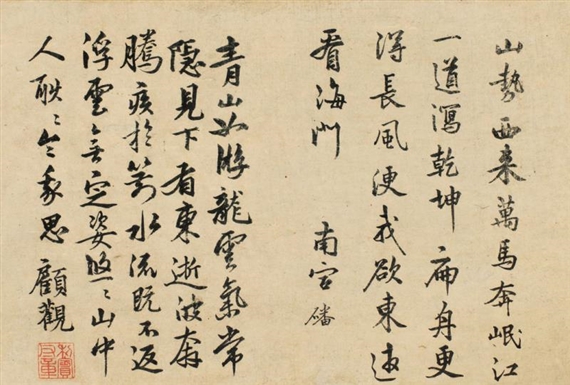 山勢西来萬馬奔岷江
一道瀉乾坤扁舟更
得長風便我欲東
看海門 南宮磻
青山如游龍雲氣常
隱見下有東逝波奔
騰疾於箭水流既不返
浮雲無定姿悠〻山中
人耿〻令我思 顧觀